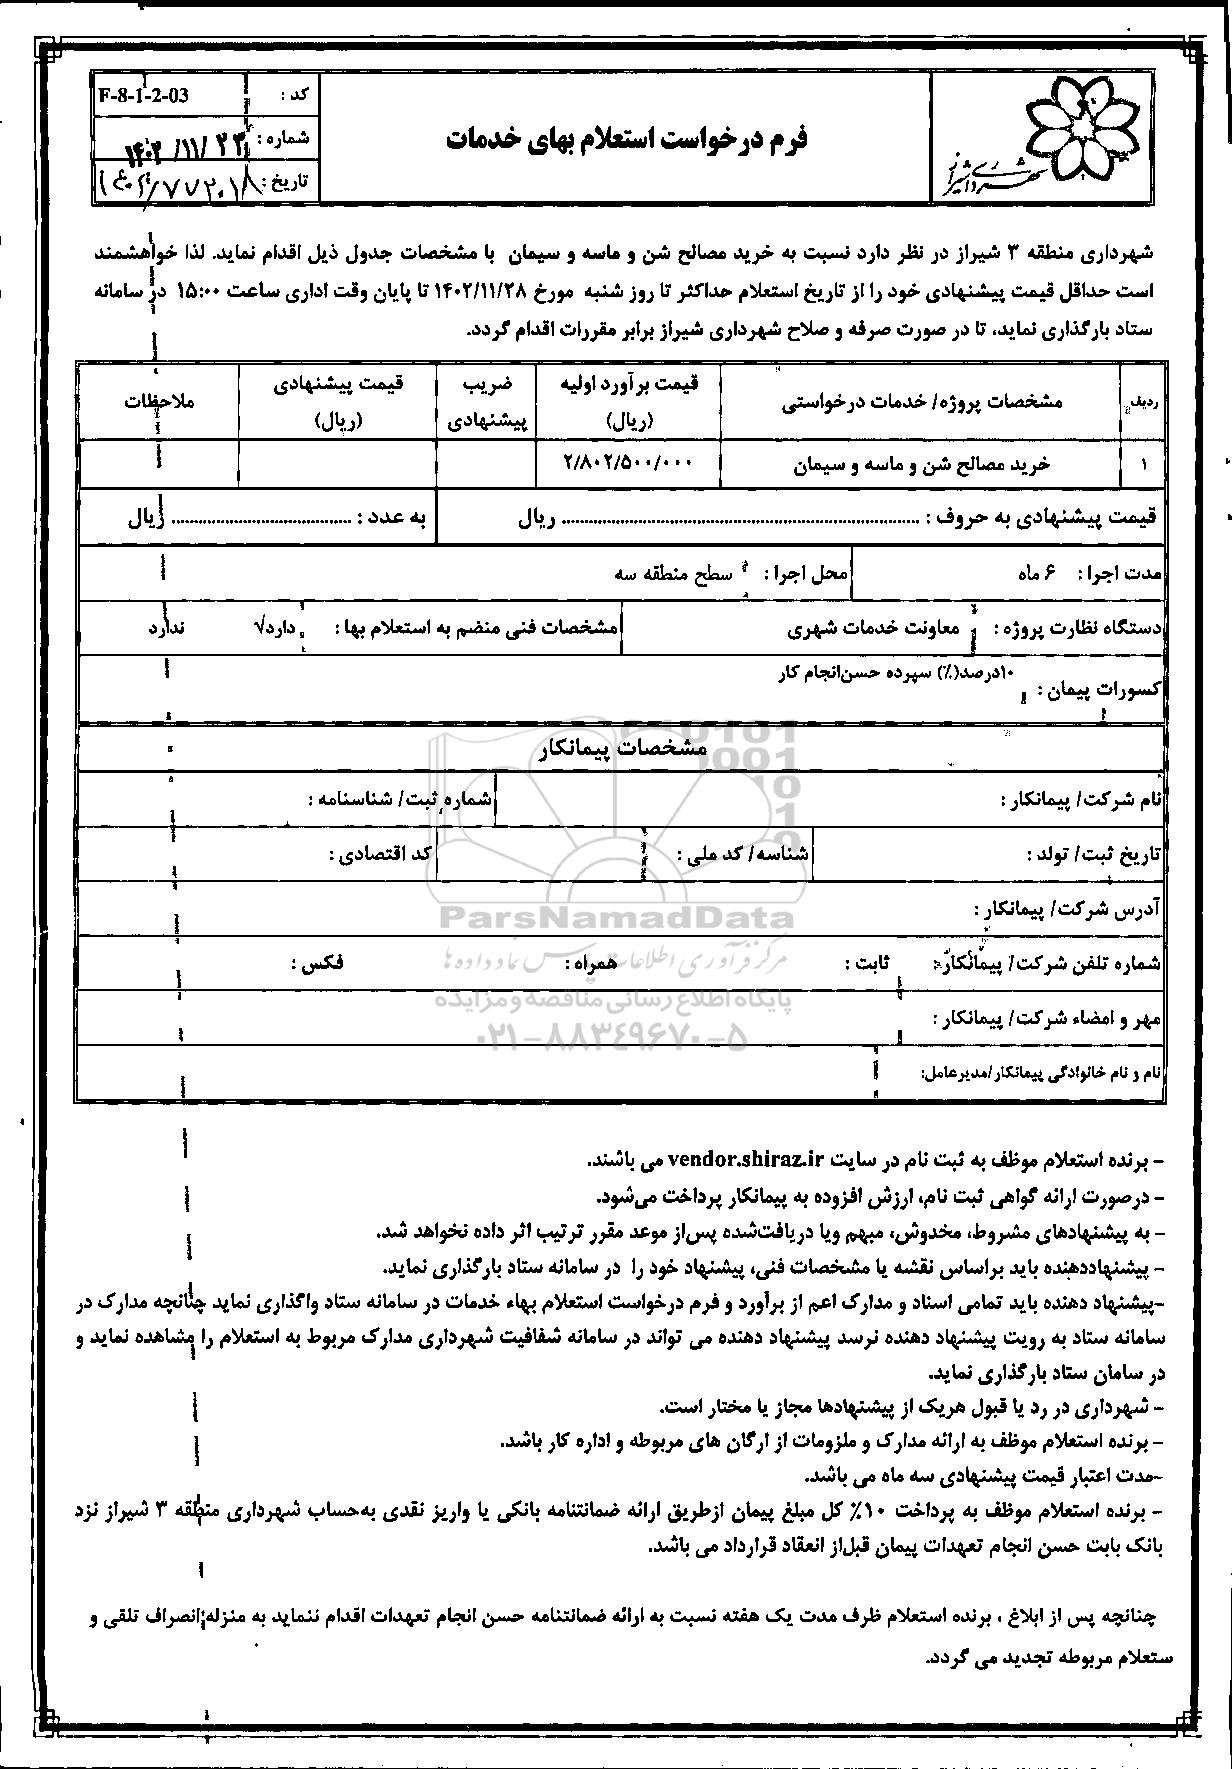 شهرداری شیراز
فرم درخواست استعلام بهای خدمات
کد : F-8-1-2-03
شماره : ۱۴۰۲/۱۱/۲۳
تاریخ :
شهرداری منطقه ۳ شیراز در نظر دارد نسبت به خرید مصالح شن و ماسه و سیمان با مشخصات جدول ذیل اقدام نماید. لذا خواهشمند
است حداقل قیمت پیشنهادی خود را از تاریخ استعلام حداکثر تا روز شنبه مورخ ۱۴۰۲/۱۱/۲۸ تا پایان وقت اداری ساعت ۱۵:۰۰ در سامانه
ستاد بارگذاری نماید، تا در صورت صرفه و صلاح شهرداری شیراز برابر مقررات اقدام گردد.
ردیف مشخصات پروژه/ خدمات درخواستی قیمت برآورد اولیه (ریال) ضریب پیشنهادی قیمت پیشنهادی (ریال) ملاحظات
۱ خرید مصالح شن و ماسه و سیمان ۲/۸۰۲/۵۰۰/۰۰۰
قیمت پیشنهادی به حروف : ........ ریال به عدد : ........ ریال
مدت اجرا : ۶ ماه محل اجرا : سطح منطقه سه
دستگاه نظارت پروژه : معاونت خدمات شهری مشخصات فنی منضم به استعلام بها : دارد√ ندارد
کسورات پیمان : ۱۰درصد(٪) سپرده حسن‌انجام کار
مشخصات پیمانکار
نام شرکت/ پیمانکار : شماره ثبت/ شناسنامه :
تاریخ ثبت/ تولد : شناسه/ کد ملی : کد اقتصادی :
آدرس شرکت/ پیمانکار :
شماره تلفن شرکت/ پیمانکار: ثابت : همراه : فکس :
مهر و امضاء شرکت/ پیمانکار :
نام و نام خانوادگی پیمانکار/مدیرعامل:
ParsNamadData
مرکز فرآوری اطلاعات پارس نماد داده ها
پایگاه اطلاع رسانی مناقصه و مزایده
۰۲۱-۸۸۳۴۹۶۷۰-۵
- برنده استعلام موظف به ثبت نام در سایت vendor.shiraz.ir می باشند.
- درصورت ارائه گواهی ثبت نام، ارزش افزوده به پیمانکار پرداخت می‌شود.
- به پیشنهادهای مشروط، مخدوش، مبهم ویا دریافت‌شده پس‌از موعد مقرر ترتیب اثر داده نخواهد شد.
- پیشنهاددهنده باید براساس نقشه یا مشخصات فنی، پیشنهاد خود را در سامانه ستاد بارگذاری نماید.
-پیشنهاد دهنده باید تمامی اسناد و مدارک اعم از برآورد و فرم درخواست استعلام بهاء خدمات در سامانه ستاد واگذاری نماید چنانچه مدارک در
سامانه ستاد به رویت پیشنهاد دهنده نرسد پیشنهاد دهنده می تواند در سامانه شفافیت شهرداری مدارک مربوط به استعلام را مشاهده نماید و
در سامان ستاد بارگذاری نماید.
- شهرداری در رد یا قبول هریک از پیشنهادها مجاز یا مختار است.
- برنده استعلام موظف به ارائه مدارک و ملزومات از ارگان های مربوطه و اداره کار باشد.
-مدت اعتبار قیمت پیشنهادی سه ماه می باشد.
- برنده استعلام موظف به پرداخت ۱۰٪ کل مبلغ پیمان ازطریق ارائه ضمانتنامه بانکی یا واریز نقدی به‌حساب شهرداری منطقه ۳ شیراز نزد
بانک بابت حسن انجام تعهدات پیمان قبل‌از انعقاد قرارداد می باشد.
چنانچه پس از ابلاغ ، برنده استعلام ظرف مدت یک هفته نسبت به ارائه ضمانتنامه حسن انجام تعهدات اقدام ننماید به منزله انصراف تلقی و
ستعلام مربوطه تجدید می گردد.